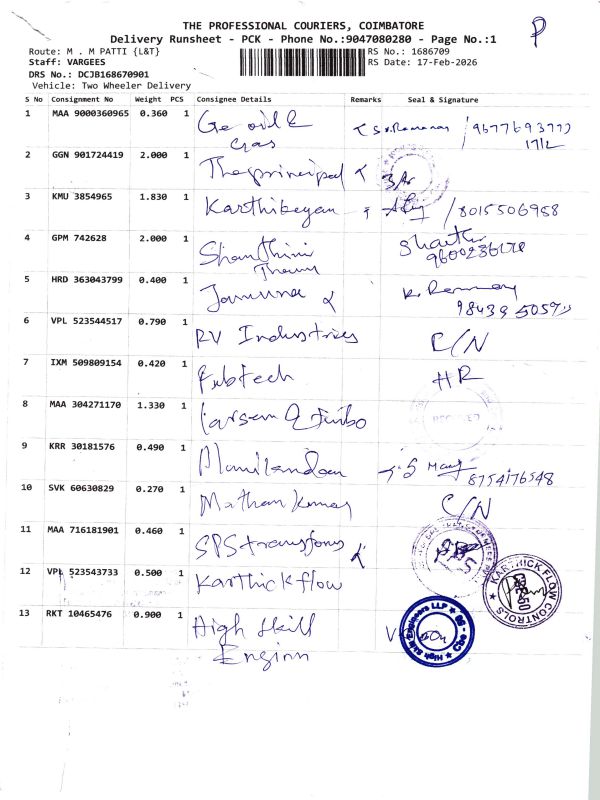 THE PROFESSIONAL COURIERS, COIMBATORE
Delivery Runsheet - PCK - Phone No.:9047080280 - Page No.:1
P
Route: M . M PATTI {L&T}
RS No.: 1686709
Staff: VARGEES
RS Date: 17-Feb-2026
DRS No.: DCJB168670901
Vehicle: Two Wheeler Delivery
S No Consignment No Weight PCS Consignee Details Remarks Seal & Signature
1 MAA 9000360965 0.360 1 Ge oil &
Gas
17/2
2 GGN 901724419 2.000 1 The principal
3 KMU 3854965 1.830 1 Karthikeyan /8015506958
4 GPM 742628 2.000 1 Shanthini
5 HRD 363043799 0.400 1 Jamuna
6 VPL 523544517 0.790 1 RV Industries C/N
7 IXM 509809154 0.420 1 Fubtech HR
8 MAA 304271170 1.330 1 Larsen & Turbo
9 KRR 30181576 0.490 1
8754176548
10 SVK 60630829 0.270 1 Mathan Kumar C/N
11 MAA 716181901 0.460 1 SPS transfoms
12 VPL 523543733 0.500 1 Karthick flow
KARTHICK FLOW CONTROLS
13 RKT 10465476 0.900 1 High skill
Enginn
High Skill Engineers LLP